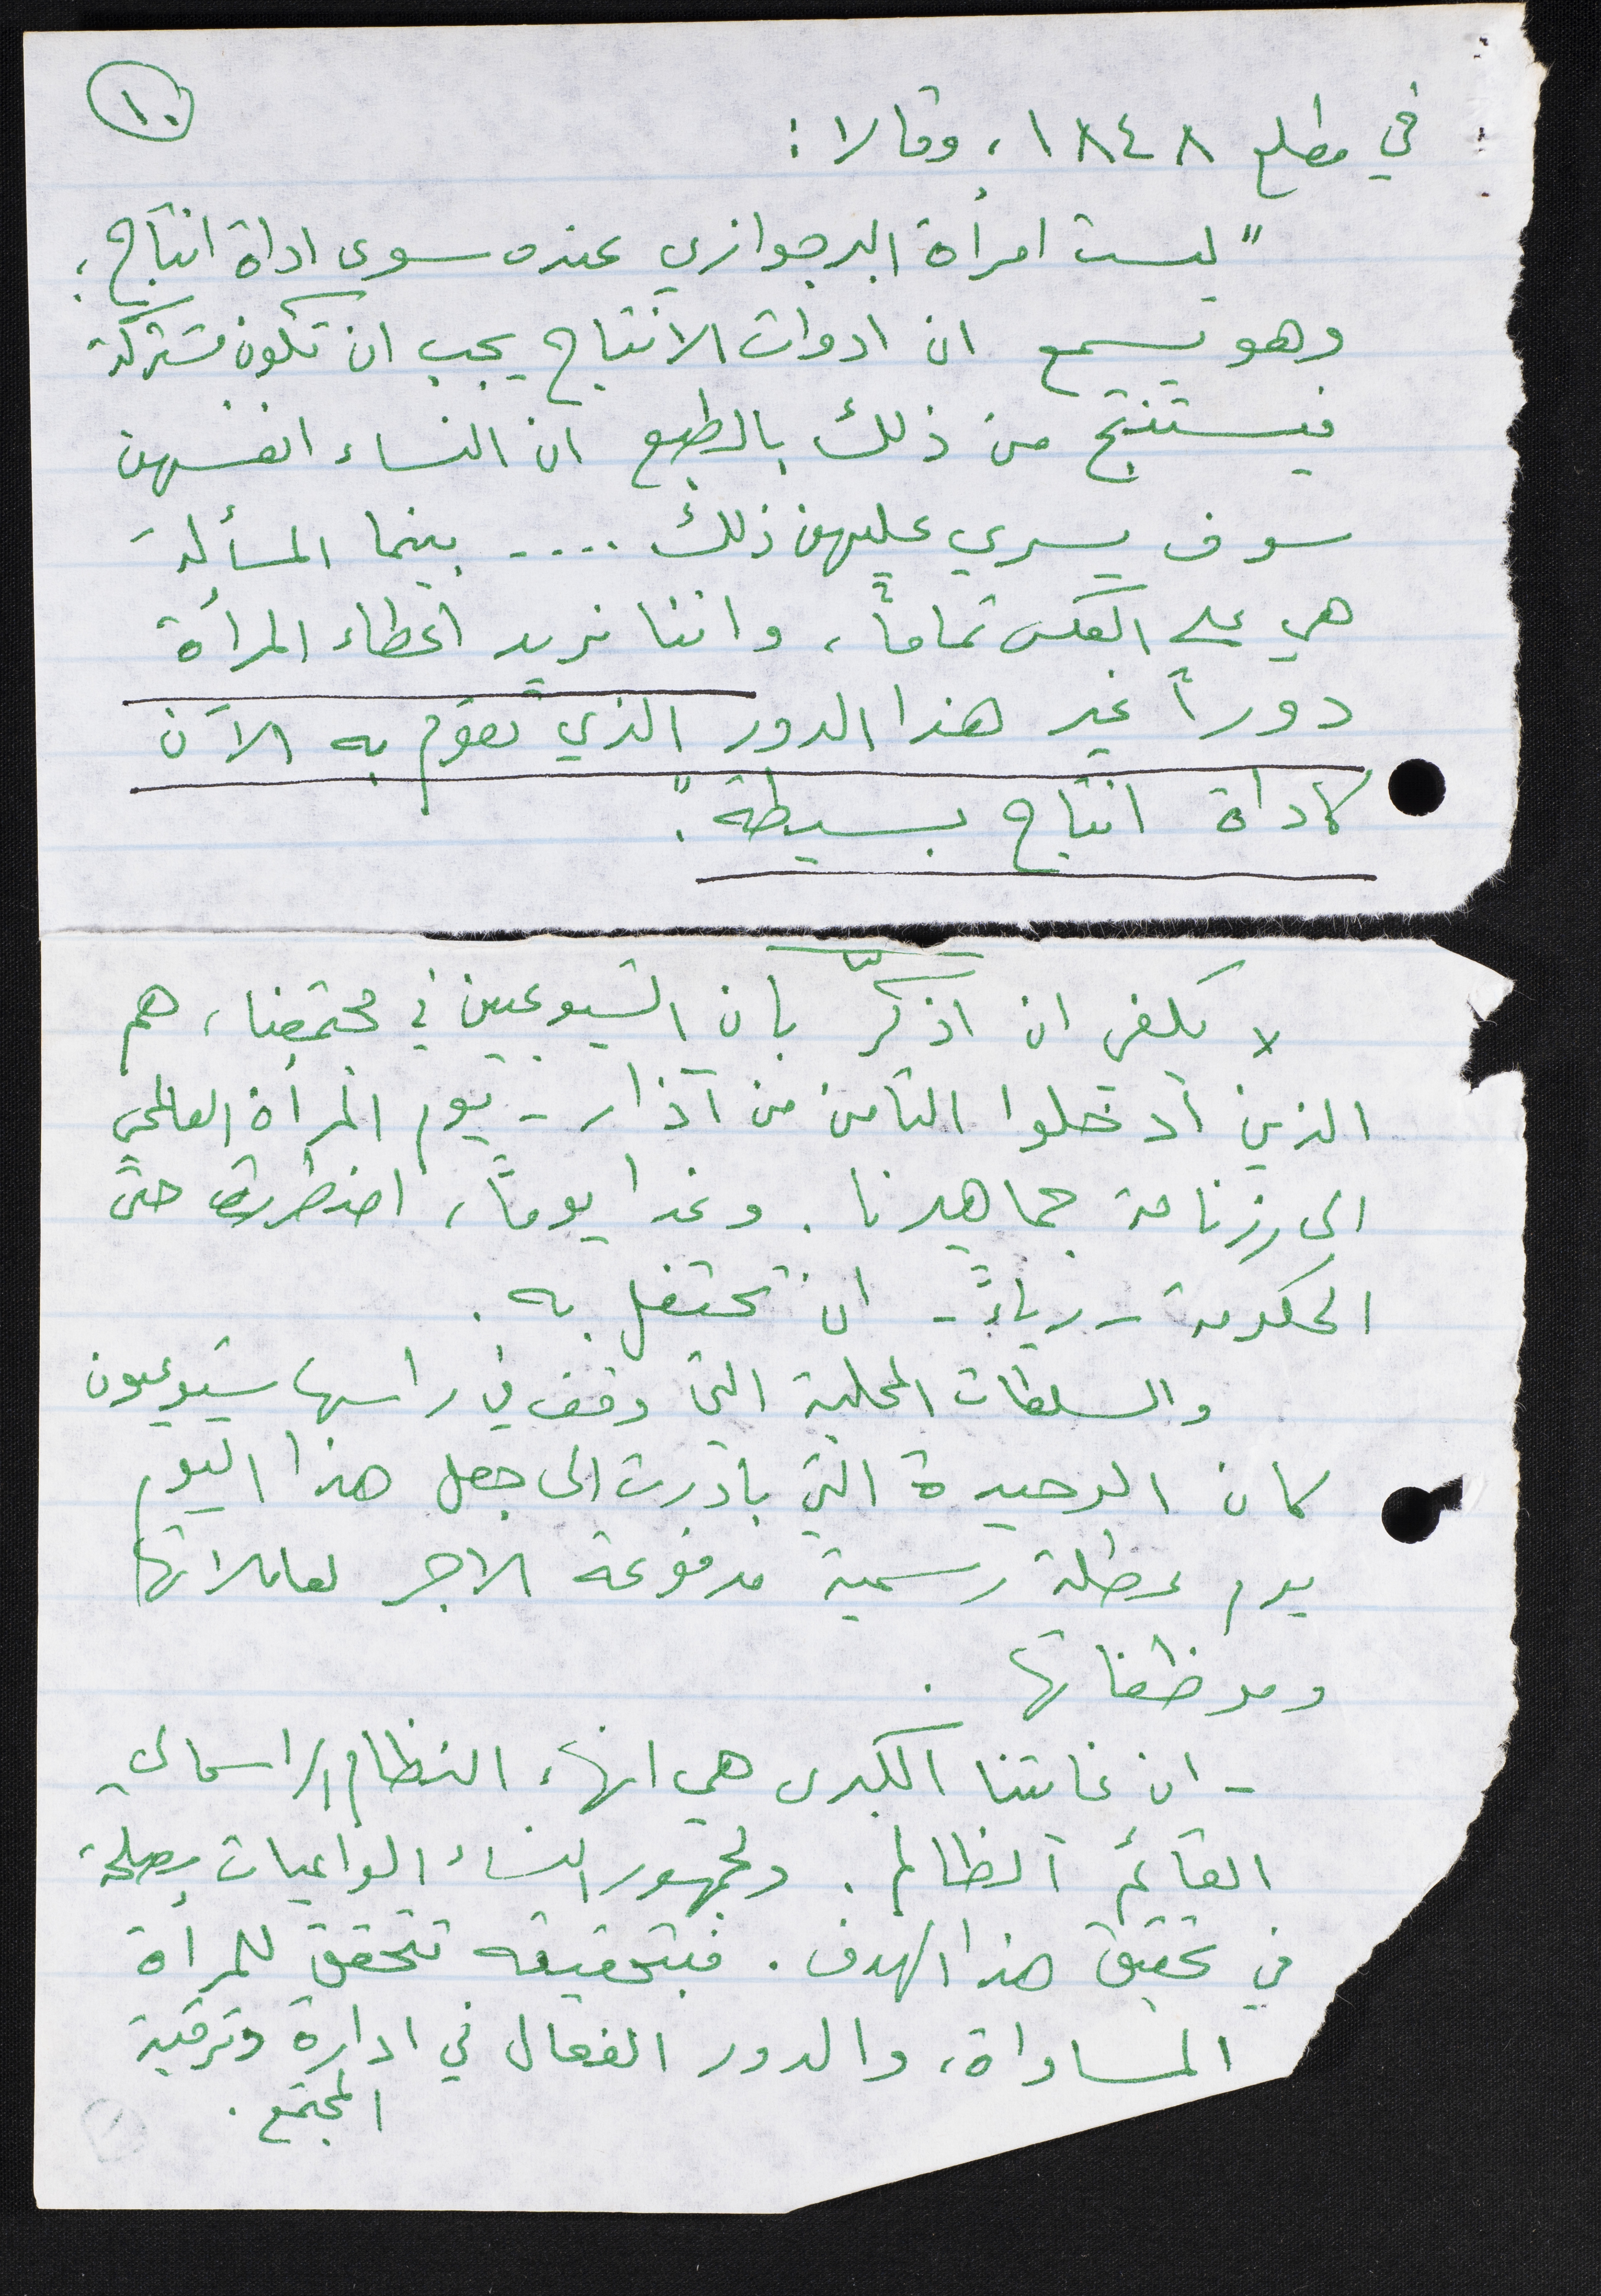 ١٠
في مطلع ١٨٤٨، وقالا:
"ليست امرأة البرجوازي عنده سوى اداة انتاج،
وهو يسمع ان ادوات الانتاج يجب ان تكون مشتركة
فيستنتج من ذلك بالطبع ان النساء انفسهن
سوف يسري عليهن ذلك .... بينما المسألة
هي على العكس تماماً، واننا نريد اعطاء المرأة
دوراً غير هذا الدور الذي تقوم به الآن
كاداة انتاج بسيطة".
لا يكفي ان اذكّر بان الشيوعيين في مجتمعنا، هم
الذين أدخلوا الثامن من آذار - يوم المرأة العالمي
الى رزنامة جماهيرنا. وغدا يوماً، اضطرت حتى
الحكومة - رياءً - ان تحتفل به.
والسلطات المحلية التي وقف في راسها شيوعيون
كان الوحيدة التي بادرت الى جعل هذا اليوم
يوم عطلة رسمية مدفوعة الاجر لعاملاتها
وموظفاتها.
- ان غايتنا الكبرى هي انهاء النظام الراسمالي
القائم الظالم. ولجمهور النساء الواعيات مصلحة
في تحقيق هذا الهدف. فبتحقيقه تتحقق للمرأة
المساواة، والدور الفعال في ادارة وترقية
المجتمع.